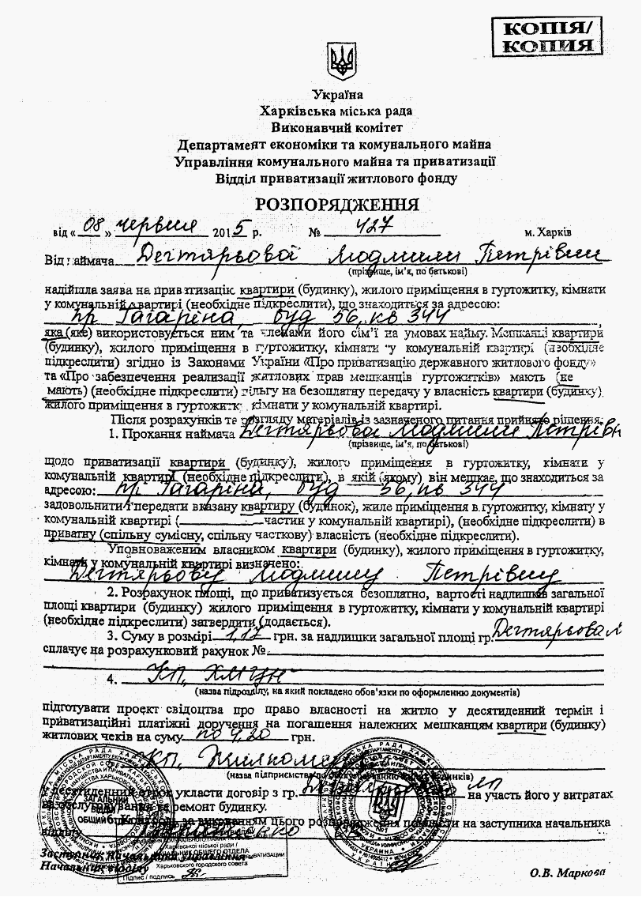 КОПІЯ/
КОПИЯ
Україна
Харківська міська рада
Виконавчий комітет
Департамент економіки та комунального майна
Управління комунального майна та приватизації
Відділ приватизації житлового фонду
РОЗПОРЯДЖЕННЯ
від « 08 » червня 2015 р. № 427 м. Харків
Від наймача Дегтярьової Людмили Петрівни
(прізвище, ім'я, по батькові)
надійшла заява на приватизацію квартири (будинку), жилого приміщення в гуртожитку, кімнати
у комунальній квартирі (необхідне підкреслити), що знаходиться за адресою:
пр Гагаріна, буд 56, кв 344
яка (яке) використовується ним та членами його сім'ї на умовах найму. Мешканці квартири
(будинку), жилого приміщення в гуртожитку, кімнати у комунальній квартирі (необхідне
підкреслити) згідно із Законами України «Про приватизацію державного житлового фонду»
та «Про забезпечення реалізації житлових прав мешканців гуртожитків» мають (не
мають) (необхідне підкреслити) пільгу на безоплатну передачу у власність квартири (будинку)
жилого приміщення в гуртожитку, кімнати у комунальній квартирі.
Після розрахунків та розгляду матеріалів із зазначеного питання прийнято рішення.
1. Прохання наймача Дегтярьової Людмили Петрівни
(прізвище, ім'я, по батькові)
щодо приватизації квартири (будинку), жилого приміщення в гуртожитку, кімнати у
комунальній квартирі (необхідне підкреслити), в якій (якому) він мешкає, що знаходиться за
адресою: пр Гагаріна, буд 56, кв 344
задовольнити і передати вказану квартиру (будинок), жиле приміщення в гуртожитку, кімнату у
комунальній квартирі ( частин у комунальній квартирі), (необхідне підкреслити) в
приватну (спільну сумісну, спільну часткову) власність (необхідне підкреслити).
Уповноваженим власником квартири (будинку), жилого приміщення в гуртожитку,
кімнати у комунальній квартирі визначено:
Дегтярьову Людмилу Петрівну
2. Розрахунок площі, що приватизується безоплатно, вартості надлишків загальної
площі квартири (будинку) жилого приміщення в гуртожитку, кімнати у комунальній квартирі
(необхідне підкреслити) затвердити (додається).
3. Суму в розмірі 1,17 грн. за надлишки загальної площі гр. Дегтярьова Л
сплачує на розрахунковий рахунок №
4. КП,
(назва підрозділу, на який покладено обов'язки по оформленню документів)
підготувати проект свідоцтва про право власності на житло у десятиденний термін і
приватизаційні платіжні доручення на погашення належних мешканцям квартири (будинку)
житлових чеків на суму по 4,20 грн.
КП,
(назва підприємства по обслуговуванню будинків)
у десятиденний строк укласти договір з гр. ЛП на участь його у витратах
на обслуговування та ремонт будинку.
Контроль за виконанням цього розпорядження покласти на заступника начальника
відділу
ЗАГАЛЬНИЙ
ВІДДІЛ
ОБЩИЙ ОТДЕЛ
Заступник начальника управління
Начальник відділу О.В. Маркова